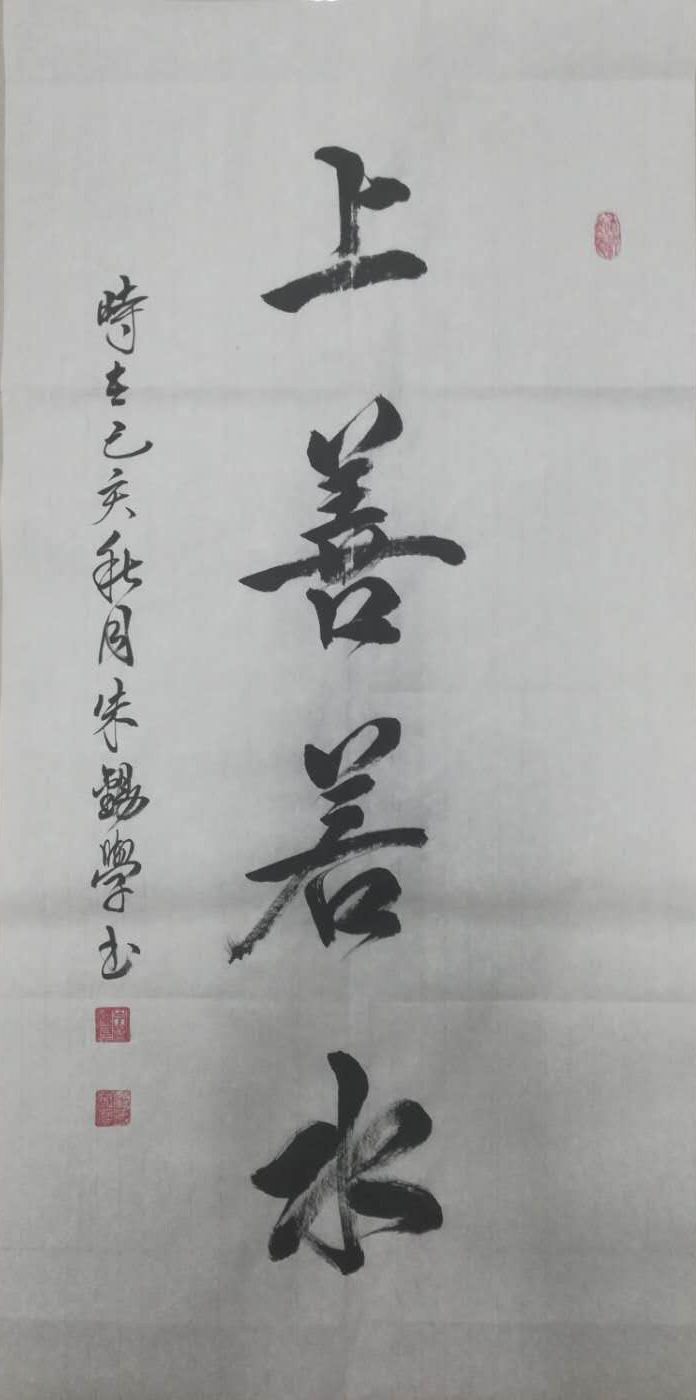 上善若水
時在己亥秋月朱錫學书